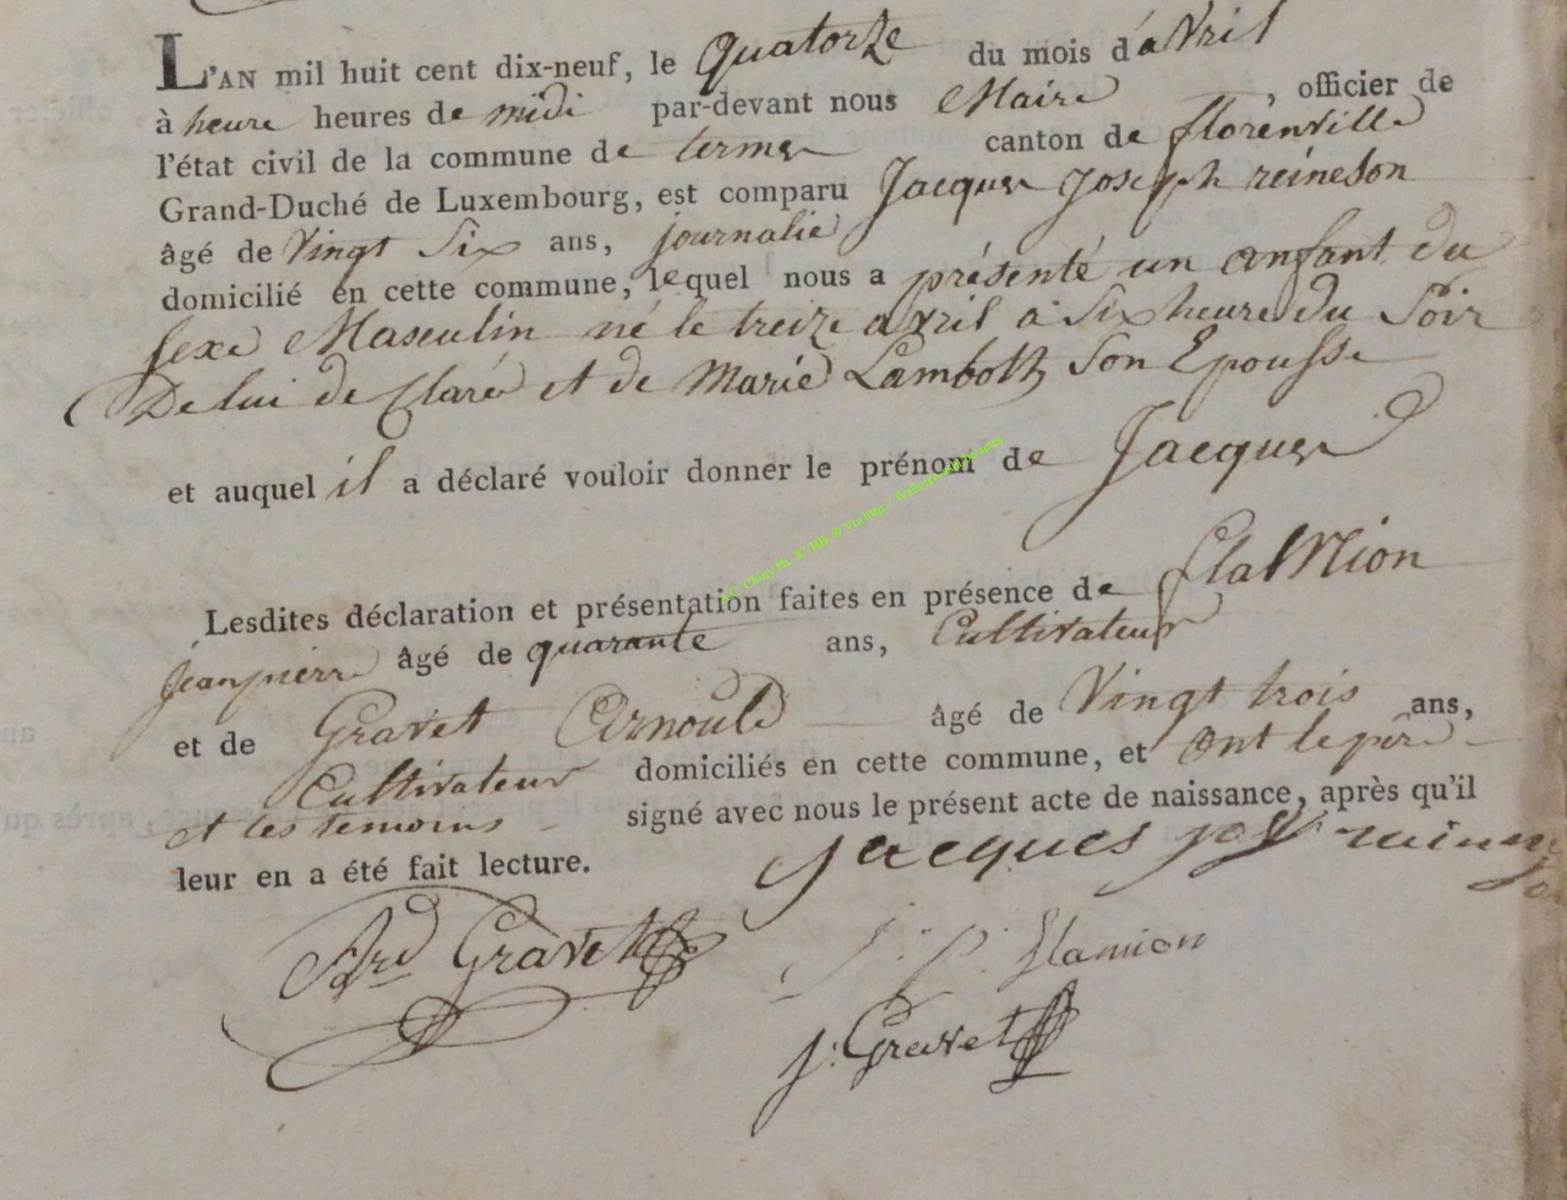 L'AN mil huit cent dix-neuf, le quatorze du mois d'avril
à heure heures de midi par-devant nous Maire, officier de
l'état civil de la commune de termes canton de florenville
Grand-Duché de Luxembourg, est comparu Jacques Joseph reineson
âgé de Vingt Six ans, journalié
domicilié en cette commune, lequel nous a présenté un enfant du
sexe Masculin né le treize avril à Six heure du Soir
De lui de Claré et de Marie Lambott Son Epousse
et auquel il a déclaré vouloir donner le prénom de Jacques
Lesdites déclaration et présentation faites en présence de flaMion
jeanpierre âgé de quarante ans, Cultivateur
et de Gravet Arnould âgé de Vingt trois ans,
Cultivateur domiciliés en cette commune, et ont le pere
et les temoins signé avec nous le présent acte de naissance, après qu'il
leur en a été fait lecture.
jacques jos
Ard Gravet
J. P. flamion
J: Gravet